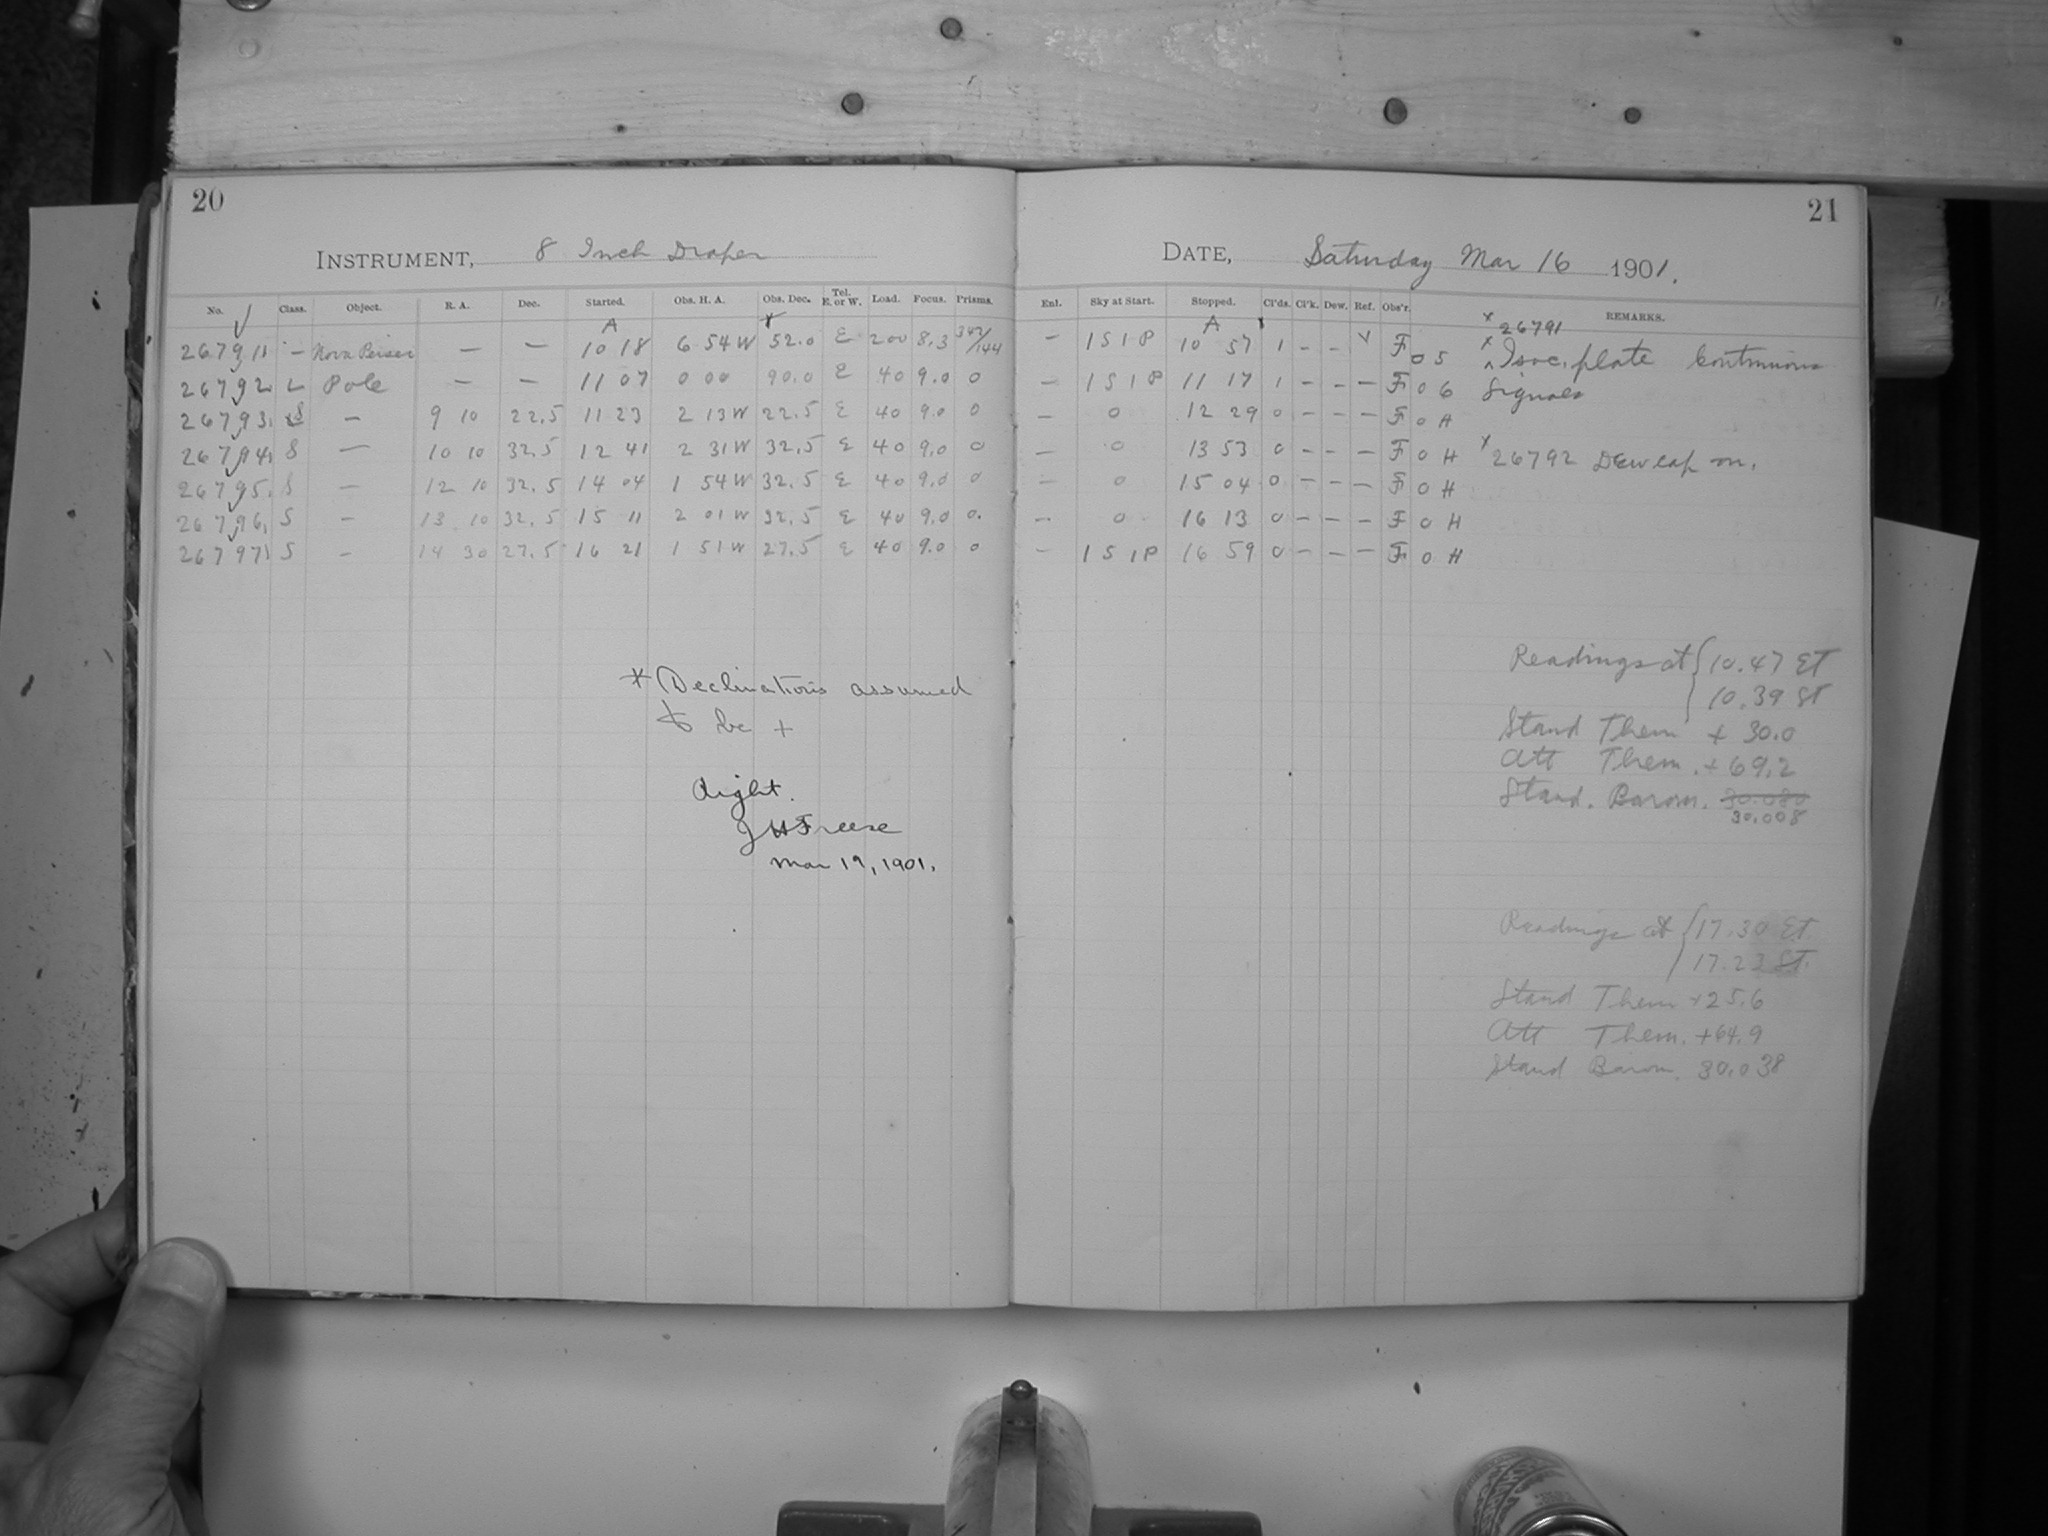 20
INSTRUMENT, 8 Inch Draper
No. Class. Object. R. A. Dec. Started. Obs. H. A. Obs. Dec. Tel. E. or W. Load. Focus. Prisms.
26791 – Nova Persei — — A 10 18 6 54 W 52.0 E 200 8.3 342/144
26792 L Pole — — 11 07 0 00 90.0 E 40 9.0 0
26793 S — 9 10 22.5 11 23 2 13 W 22.5 E 40 9.0 0
26794 S — 10 10 32.5 12 41 2 31 W 32.5 E 40 9.0 0
26795 S — 12 10 32.5 14 04 1 54 W 32.5 E 40 9.0 0
26796 S — 13 10 32.5 15 11 2 01 W 32.5 E 40 9.0 0
26797 S — 14 30 27.5 16 21 1 51 W 27.5 E 40 9.0 0
* Declinations assumed
to be +
Right.
J H Freese
Mar 19, 1901.
21
DATE, Saturday Mar 16 1901.
Ent. Sky at Start. Stopped. Cl'ds. Cl'k. Dew. Ref. Obs'r. REMARKS.
– 1 S 1 P A 10 57 1 – – Y F 0 5
– 1 S 1 P 11 17 1 – – – F 0 6
– 0 12 29 0 – – – F 0 H
– 0 13 53 0 – – – F 0 H
– 0 15 04 0 – – – F 0 H
– 0 16 13 0 – – – F 0 H
– 1 S 1 P 16 59 0 – – – F 0 H
x 26791
x Isoc. plate Continuous
Signals
x 26792 Dewcap on.
Readings at { 10.47 ET
10.39 ST
Stand Them + 30.0
Att Them. + 69.2
Stand. Barom. 30.080
30.008
Readings at { 17.30 ET
17.23 ST.
Stand Them +25.6
Att Them. +64.9
Stand Barom. 30.038